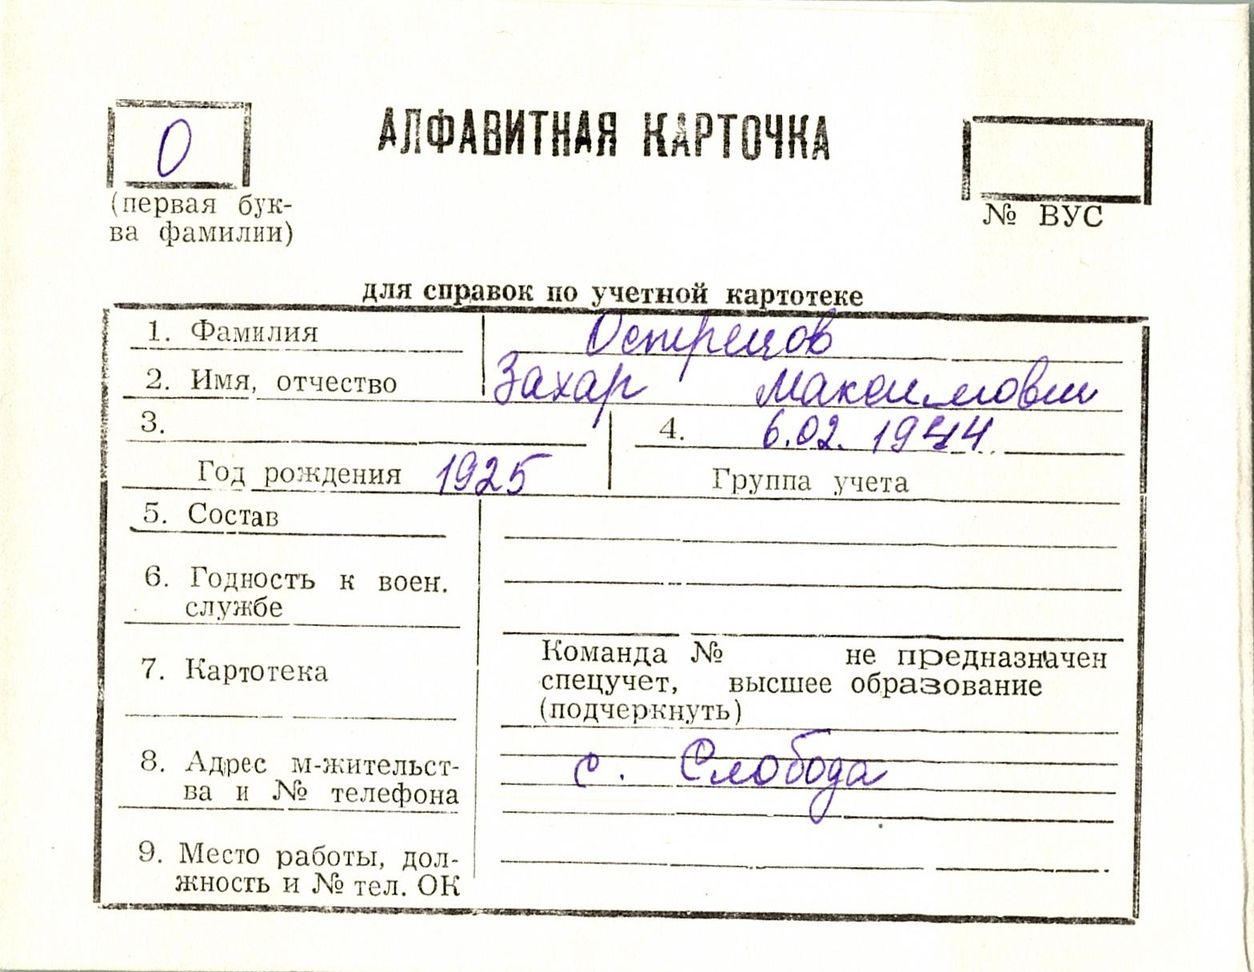 О
АЛФАВИТНАЯ КАРТОЧКА
(первая бук-
ва фамилии)
№ ВУС
для справок по учетной картотеке
1. Фамилия Острецов
2. Имя, отчество Захар Максимович
3.
4. 6.02.1944
Год рождения 1925
Группа учета
5. Состав
6. Годность к воен.
службе
7. Картотека
Команда № не предназначен
спецучет, высшее образование
(подчеркнуть)
8. Адрес м-жительст-
ва и № телефона
с. Слобода
9. Место работы, дол-
жность и № тел. ОК